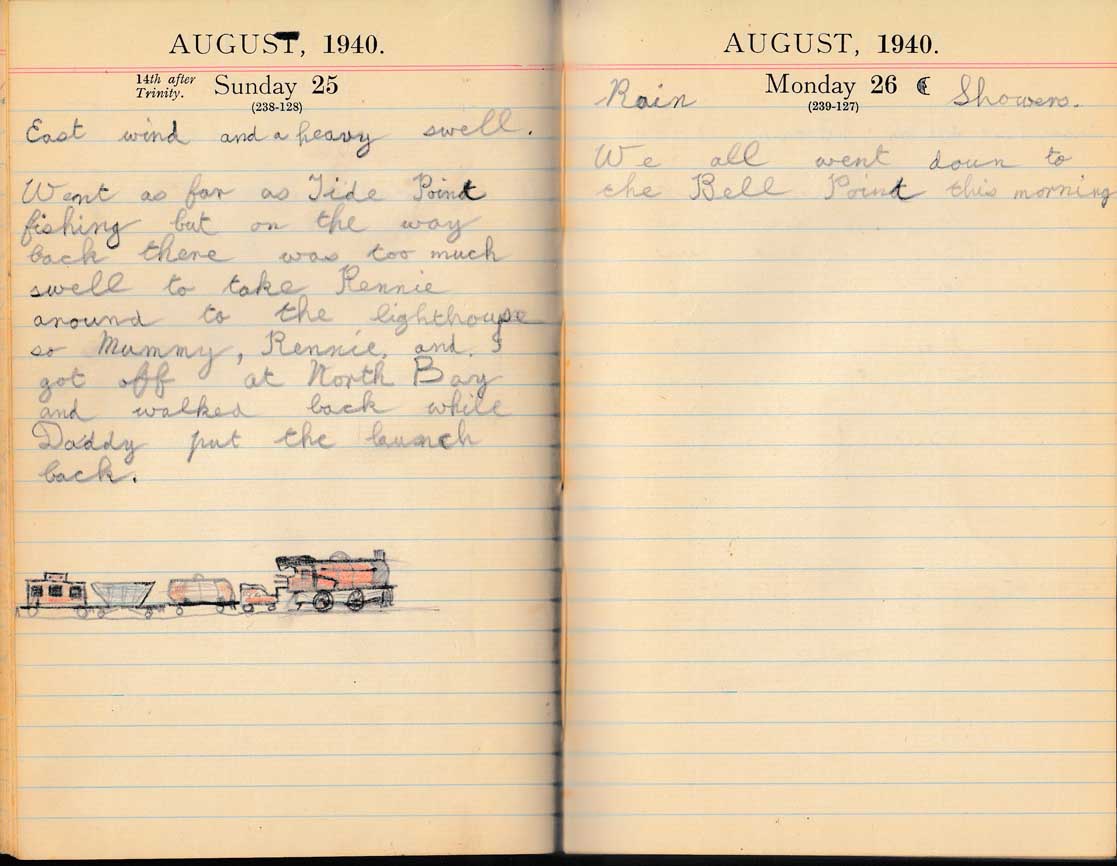 AUGUST, 1940.
14th after
Trinity.
Sunday 25
(238-128)
East wind and a heavy swell.
Went as far as Tide Point
fishing but on the way
back there was too much
swell to take Rennie
around to the lighthouse
so Mummy, Rennie, and I
got off at North Bay
and walked back while
Daddy put the launch
back.
AUGUST, 1940.
Monday 26
(239-127)
Rain Showers.
We all went down to
the Bell Point this morning